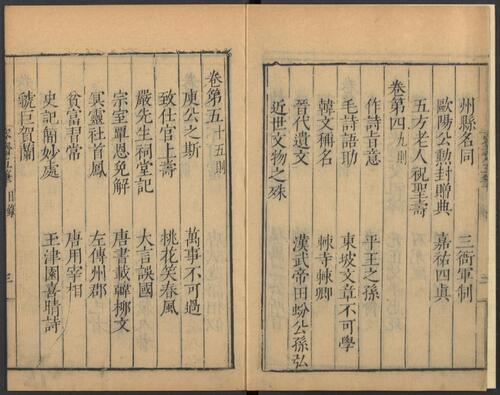 州縣名同　三衙軍制
歐陽公勳封贈典　嘉祐四真
五方老人祝聖壽
卷第四九則
作詩旨意　平王之孫
毛詩語助　東坡文章不可學
韓文稱名　棘寺棘卿
晉代遺文　漢武帝田蚡公孫弘
近世文物之殊
卷第五十五則
庾公之斯　萬事不可過
致仕官上壽　桃花笑春風
嚴先生祠堂記　大言誤國
宗室覃恩免解　唐書載韓柳文
冥靈社首鳳　左傳州郡
貧富習常　唐用宰相
史記簡妙處　玉津園喜晴詩
虢巨賀蘭
目錄　三